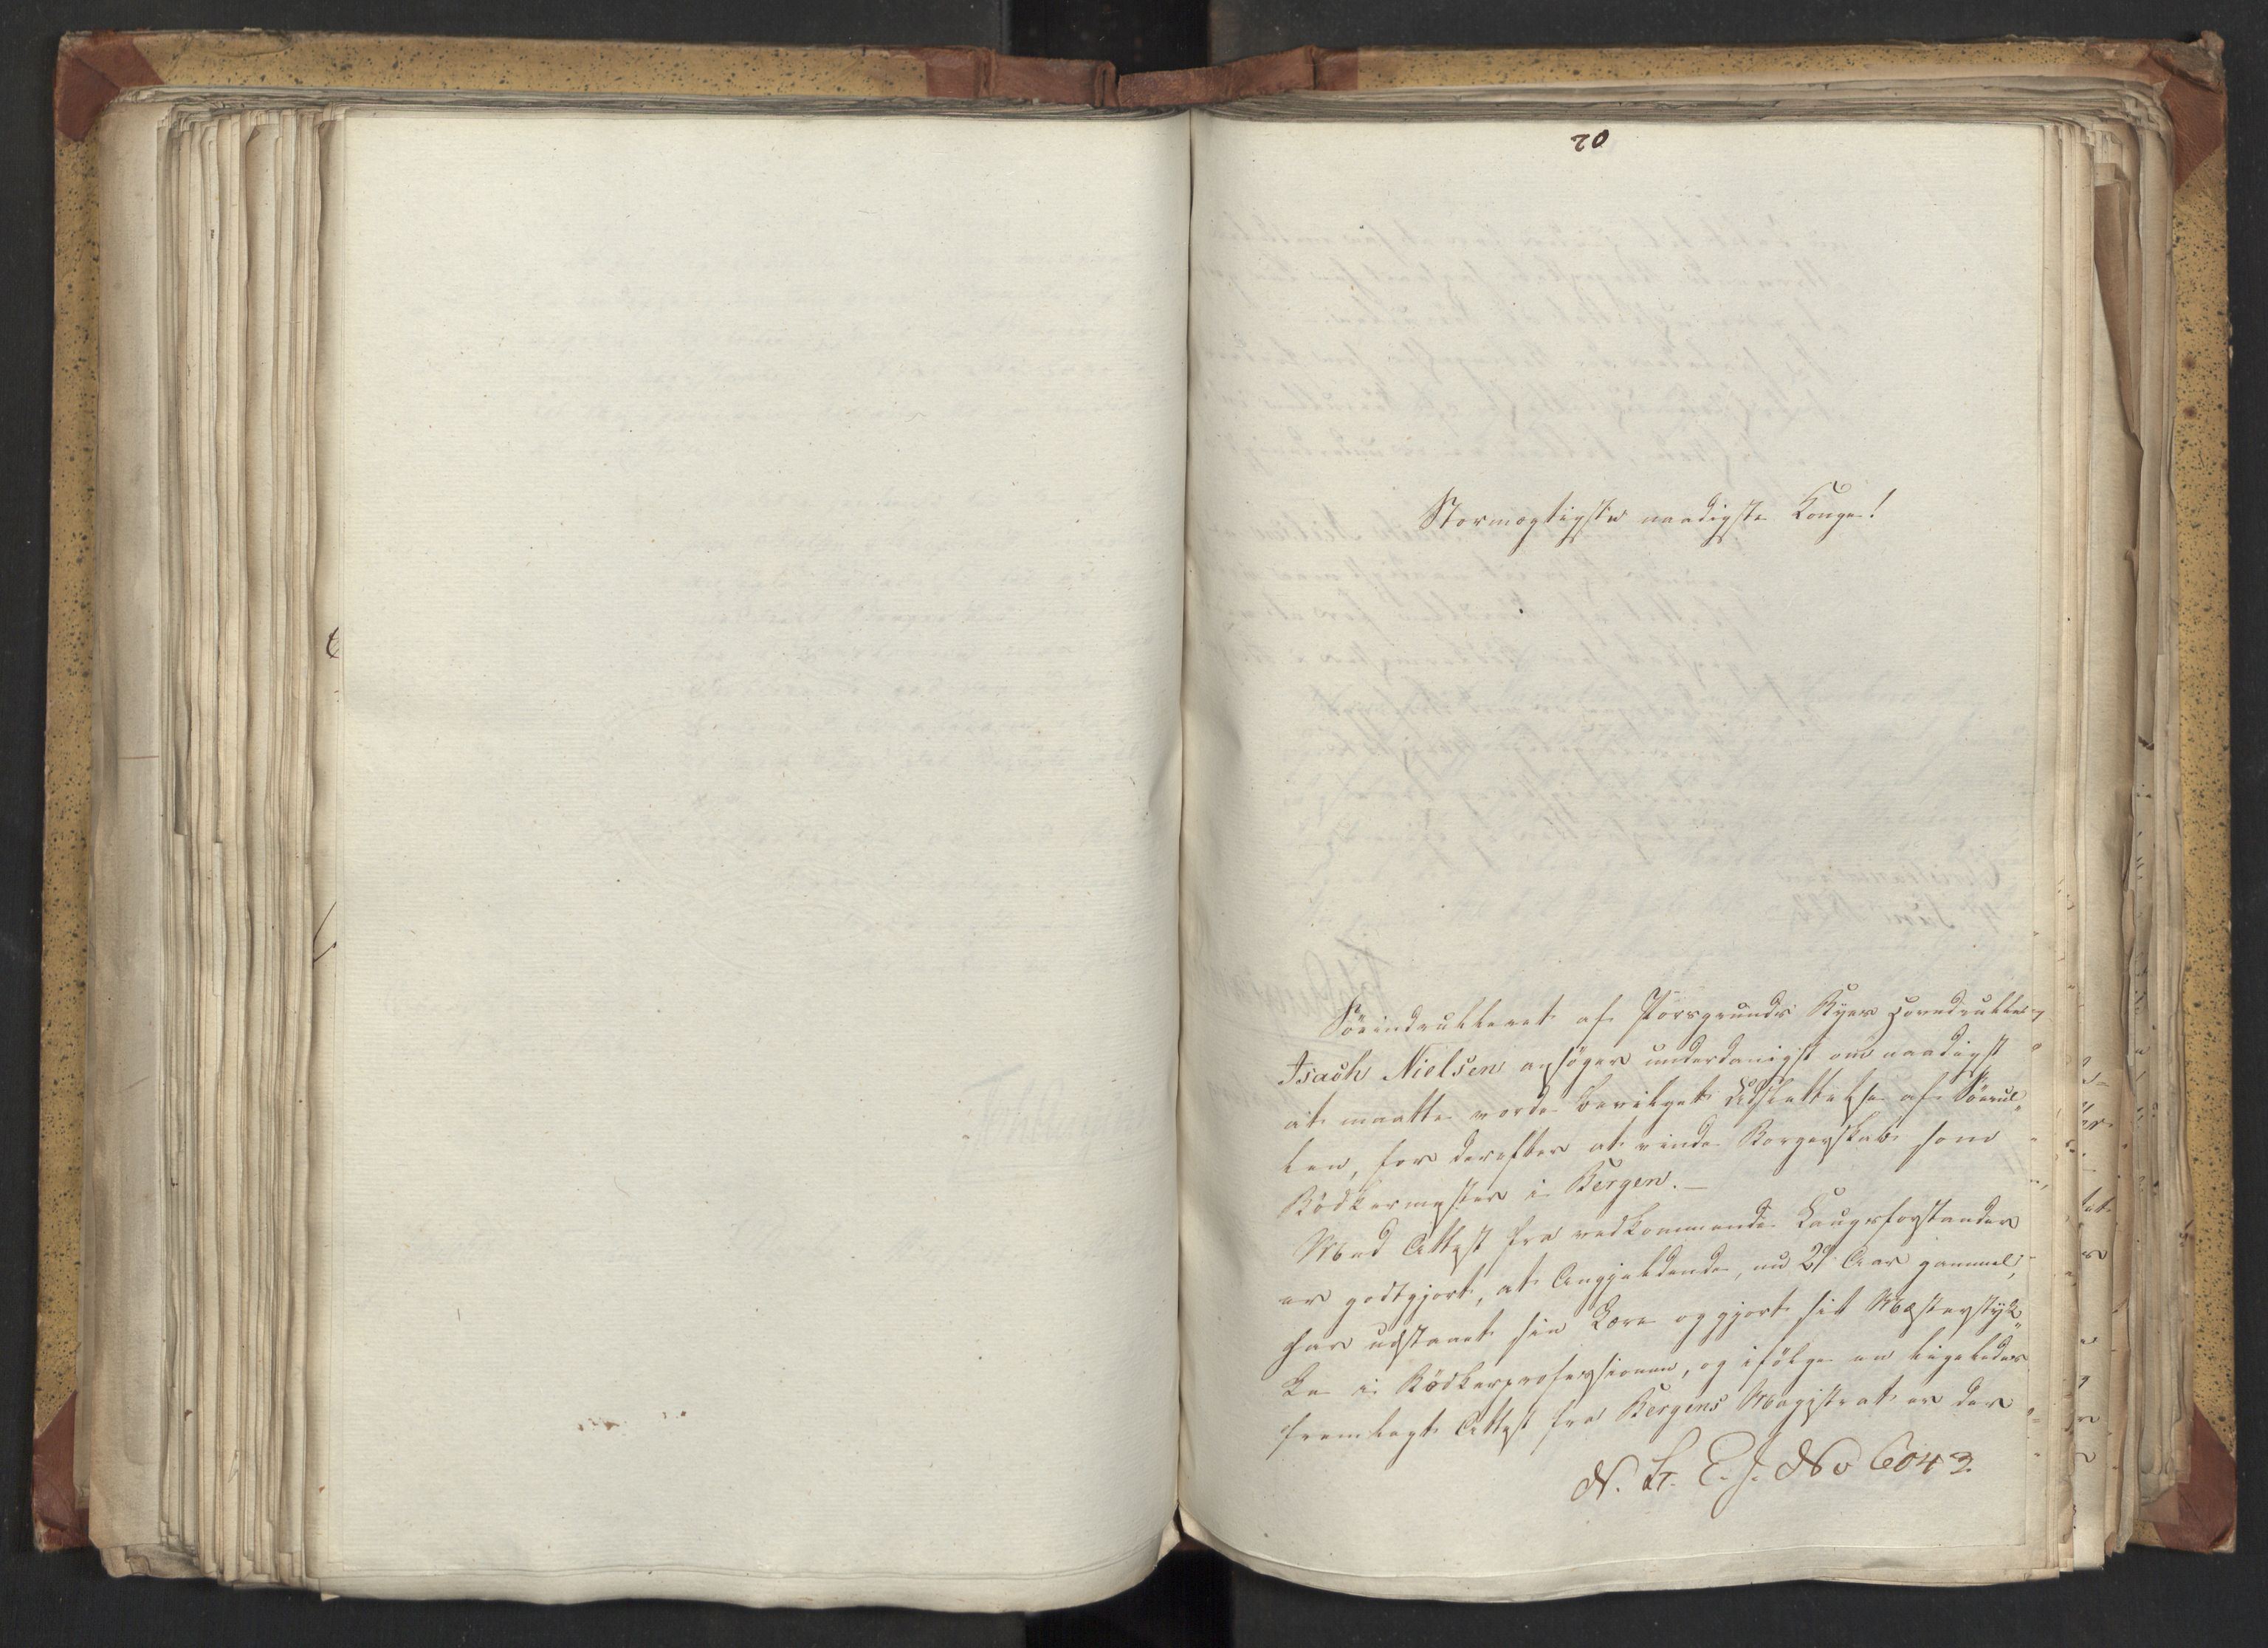 70
Stormægtigste naadigste Konge!
Søeindrulleret af Porsgrunds Byes Hovedrulle
Isach Nielsen ansøger underdanigst om naadigst
at maatte vorde bevilget Udslettelse af Søerul„
len, for derefter at vinde Borgerskab som
Bødkermester i Bergen.—
Med Attest fra vedkommende Laugsforstander
er godtgjort, at Angjeldende, nu 27 Aar gammel,
har udstaaet sin Lære og gjort sit Mesterstyk„
ke i Bødkerprofessionen, og ifølge en ligeledes
fremlagt Attest fra Bergens Magistrat er der
N. 6043